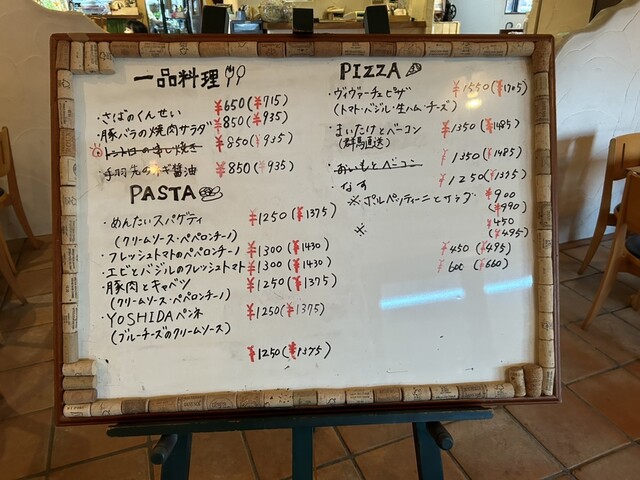 一品料理
・さばのくんせい ¥650(¥715)
・豚バラの焼肉サラダ ¥850(¥935)
・トントローの塩焼き ¥850(¥935)
・手羽先のネギ醤油 ¥850(¥935)
PASTA
・めんたいスパゲティ ¥1250(¥1375)
(クリームソース・ペペロンチーノ)
・フレッシュトマトのペペロンチーノ ¥1300(¥1430)
・エビとバジルのフレッシュトマト ¥1300(¥1430)
・豚肉とキャベツ ¥1250(¥1375)
(クリームソース・ペペロンチーノ)
・YOSHIDAペンネ ¥1250(¥1375)
(ブルーチーズのクリームソース)
¥1250(¥1375)
PIZZA
・ヴァヴァーチェピザ ¥1550(¥1705)
(トマト・バジル・生ハム・チーズ)
・まいたけとベーコン ¥1350(¥1485)
(群馬直送)
・おいもとベーコン ¥1350(¥1485)
・なす ¥1250(¥1375)
※ポルペッティーニとサラダ ¥900
(¥990)
※ ¥450
(¥495)
¥450(¥495)
¥600(¥660)